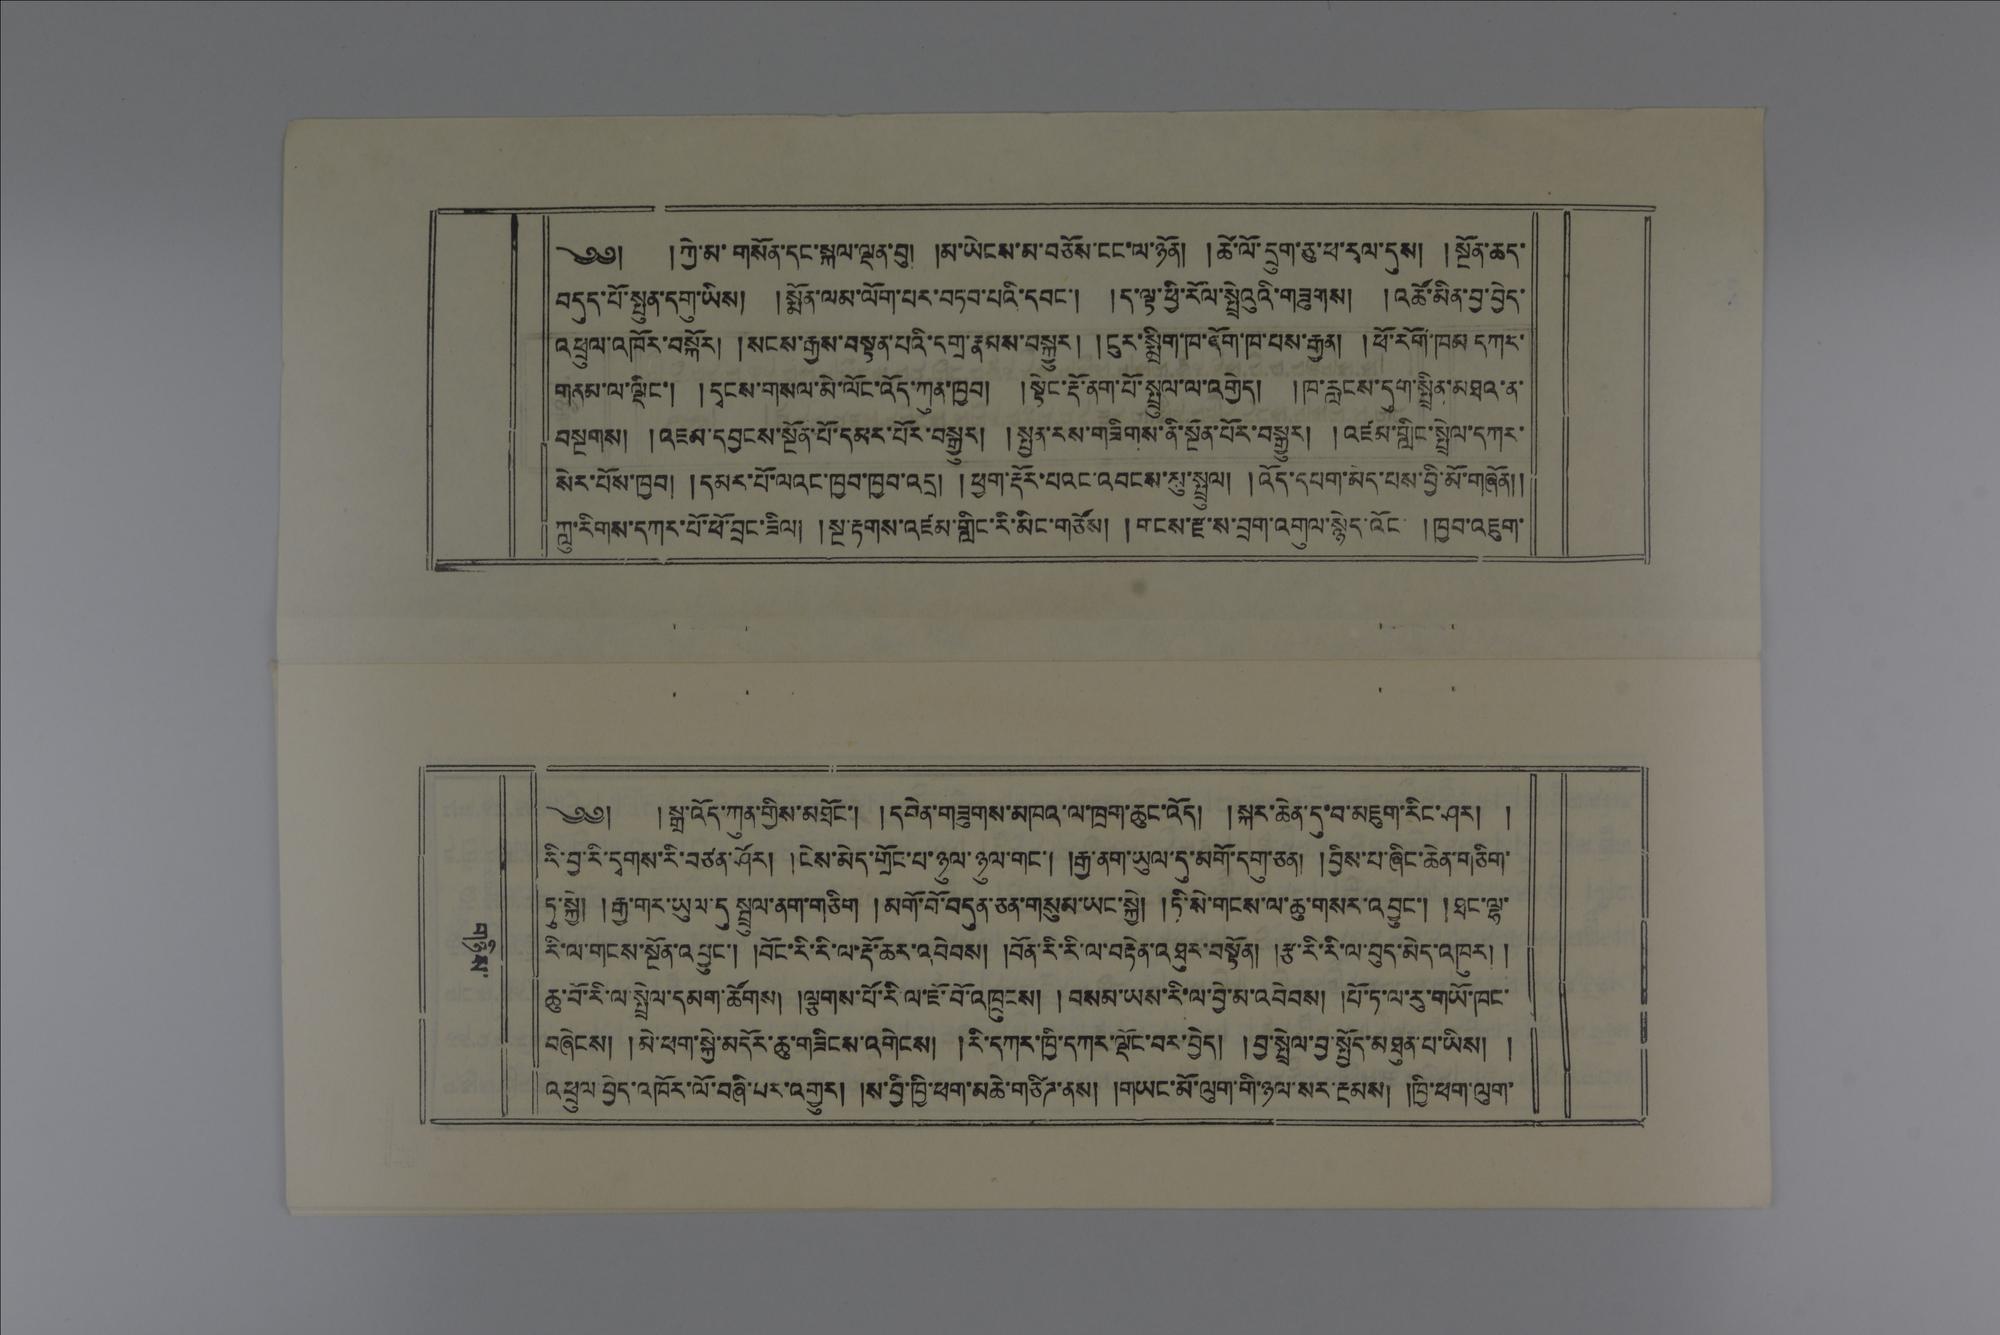 ༄༅། །ཀྱེ་མ་ གསོན་དང་སྐལ་ལྡན་བུ། །མ་ཡེངས་མ་བཅོས་ངང་ལ་ཉོན། །ཚེ་ལོ་དྲུག་ཅུ་ཕ་དྲལ་དུས། །སྔོན་ཆད་
བདུད་པོ་སྤུན་དགུ་ཡིས། །སྨོན་ལམ་ལོག་པར་བཏབ་པའི་དབང་། །ད་ལྟ་ཕྱི་རོལ་སྤྲེའུའི་གཟུགས། །འཚོ་མིན་བྱ་བྱེད་
འཕྲུལ་འཁོར་བསྐོར། །སངས་རྒྱས་བསྟན་པའི་དགྲ་རྣམས་བསྐྱུར། །དུར་སྨྲིག་ཁ་ཇོག་ཁ་པས་རྒྱན། །ཕོ་རོག་ཁམ་དཀར་
གནམ་ལ་ལྡིང་། །དྭངས་གསལ་མེ་ལོང་འོད་ཀུན་ཁྱབ། །སྟེང་རྡོ་ནག་པོ་སྤྲུལ་ལ་འགྱེད། །ཁ་རླངས་དུག་སྤྲིན་མཐའ་ན་
བསྔགས། །འཇམ་དབྱངས་སྔོན་པོ་དམར་པོར་བསྒྱུར། །སྤྱན་རས་གཟིགས་ནི་སྔོན་པོར་བསྒྱུར། །འཛམ་གླིང་སྤྲེལ་དཀར་
སེར་པོས་ཁྱབ། །དམར་པོ་ལའང་ཁྱབ་ཁྱབ་འདྲ། །ཕྱག་རྡོར་པའང་འབངས་སུ་སྤྲུལ། །འོད་དཔག་མེད་པས་བྱི་མོ་གཞོན།།
ཀླུ་རིགས་དཀར་པོ་ཕོ་བྲང་ཟིལ། །སྔ་རྟགས་འཛམ་གླིང་རི་མིང་གཙོས། །གངས་རྫ་ས་བྲག་འགུལ་སྙེད་འོང་ །ཁྱབ་འཇུག་
༄༅། །སྒྲ་འོད་ཀུན་གྱིས་མཐོང་། །དབེན་གཟུགས་མཁའ་ལ་ཁྲག་ཆུང་འོད། །སྐར་ཆེན་དུ་བ་མཇུག་རིང་ཤར། །
རི་བྱ་རི་དྭགས་རི་བཙན་ཤོར། །ངེས་མེད་གྲོང་པ་ཉུལ་ཉུལ་གང་། །རྒྱ་ནག་ཡུལ་དུ་མགོ་དགུ་ཅན། །བྱིས་པ་ཞིང་ཆེན་གཅིག་
ཏུ་སྐྱེ། །རྒྱ་གར་ཡུལ་དུ་སྤྲུལ་ནག་གཅིག །མགོ་བོ་བདུན་ཅན་གསུམ་ཡང་སྐྱེ། །ཏི་སེ་གངས་ལ་ཆུ་གསར་འབྱུང་། །ཐང་ལྷ་
རི་ལ་གངས་སྔོན་འབྱུང་། །བོང་རི་རི་ལ་རྡོ་ཆར་འབེབས། །བོན་རི་རི་ལ་བརྟེན་འཐུར་བསྟོན། །རྩ་རི་རི་ལ་བུད་མེད་འཁུར། །
ཆུ་བོ་རི་ལ་སྤྲེལ་དམག་ཚོགས། །ལྕགས་པོ་རི་ལ་ཇོ་བོ་འཁྲུངས། །བསམ་ཡས་རི་ལ་བྱེ་མ་འབེབས། །པོ་ཏ་ལ་རུ་གཡོ་ཁང་
བཞེངས། །མེ་ཕག་སྐྱེ་མདོར་ཆུ་གཟིངས་འགེངས། །རི་དཀར་ཁྱི་དཀར་ལྡོང་བར་བྱེད། །བྱ་སྤྲེལ་བྱ་སྤྱོད་མཐུན་པ་ཡིས། །
འཕྲུལ་བྱེད་འཁོར་ལོ་བཞི་པར་འགྱུར། །ས་བྱི་ཁྱི་ཕག་མཆེ་གཙིར་ནས། །གཡང་མོ་ལུག་གི་ཉལ་སར་རྔམས། །ཁྱི་ཕག་ལུག་